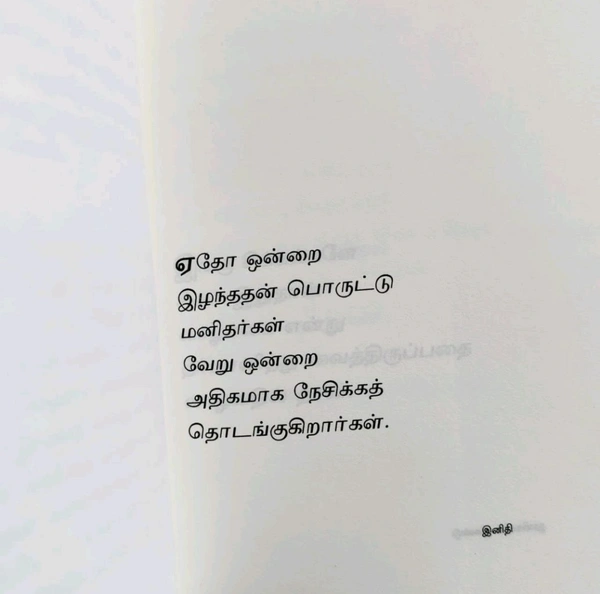 ஏதோ ஒன்றை
இழந்ததன் பொருட்டு
மனிதர்கள்
வேறு ஒன்றை
அதிகமாக நேசிக்கத்
தொடங்குகிறார்கள்.
இனிதி